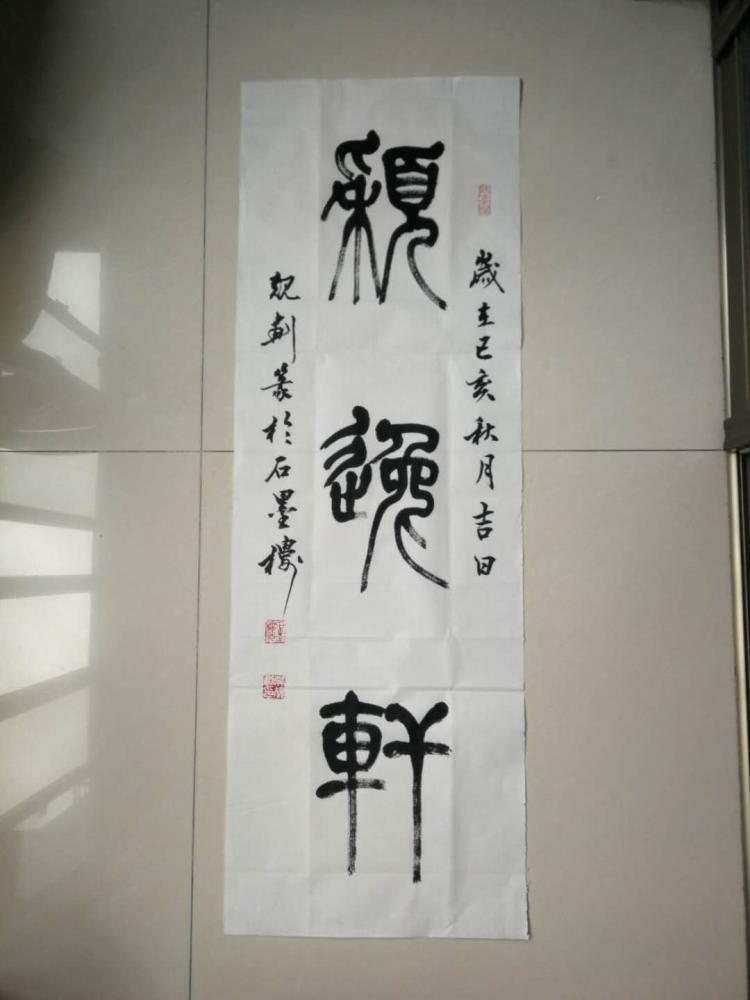 歲在己亥秋月吉日
穎逸軒
篆於石墨樓